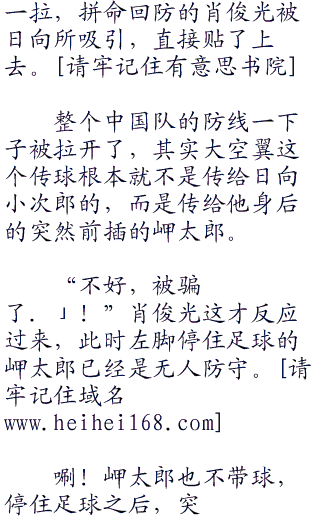 一拉，拼命回防的肖俊光被
日向所吸引，直接贴了上
去。[请牢记住有意思书院]
整个中国队的防线一下
子被拉开了，其实大空翼这
个传球根本就不是传给日向
小次郎的，而是传给他身后
的突然前插的岬太郎。
“不好，被骗
了．」！”肖俊光这才反应
过来，此时左脚停住足球的
岬太郎已经是无人防守。[请
牢记住域名
www.heihei168.com]
唰！岬太郎也不带球，
停住足球之后，突